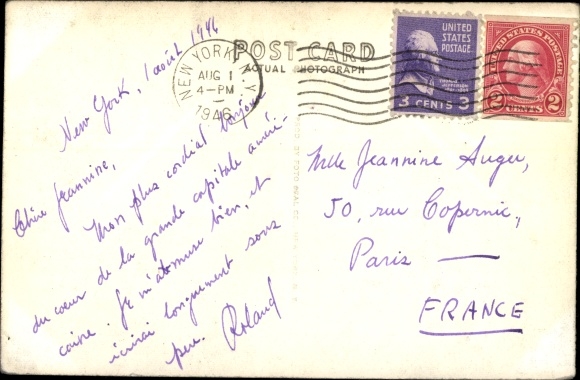 New York, 1 août 1946
Chère Jeannine,
Mon plus cordial bonjour
du coeur de la grande capitale améri-
caine. Je m'amuse bien, et
écrirai longuement sous
peu. Roland
POST CARD
ACTUAL PHOTOGRAPH
NEW YORK, N.Y.
AUG 1
4-PM
1946
UNITED
STATES
POSTAGE
3 CENTS 3
UNITED STATES POSTAGE
2 CENTS 2
Mlle Jeannine Auger,
50, rue Copernic,
Paris —
FRANCE